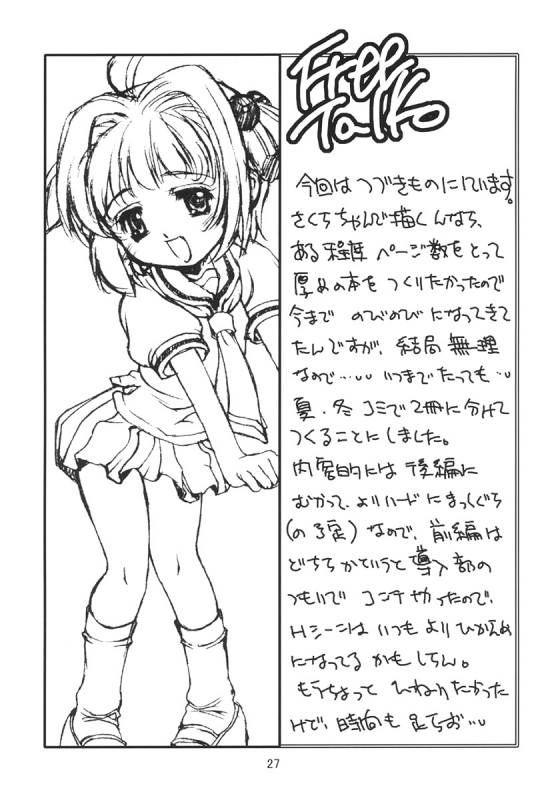 Free
Talk
今回は つづきものにしています。
さくらちゃんで描くんなら、
ある程度 ページ数をとって
厚めの本を つくりたかったので
今まで のびのびになってきて
たんですが、結局 無理
なので…… いつまでたっても…
夏・冬 コミで2冊に分けて
つくることにしました。
内容的には 後編に
むかって、よりハードに まっしぐら
(の予定) なので、前編は
どちらかというと 導入部の
つもりで コンテやったので、
Hシーンは いつもより ひかえめ
になってる かもしらん。
もうちょっと ひねりたかった
けど、時間も 足らず…
27